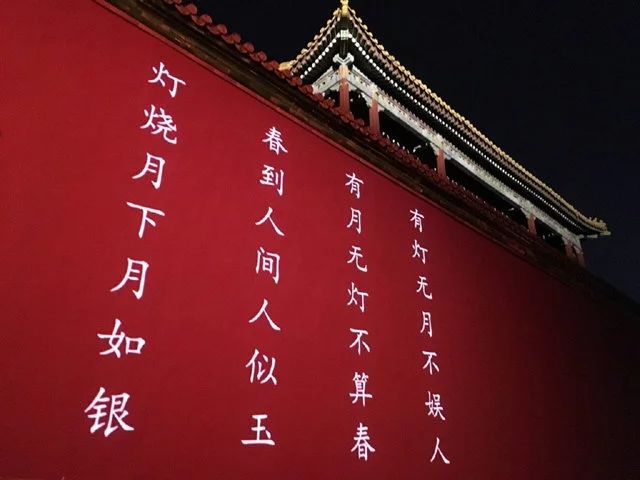 有灯无月不娱人
有月无灯不算春
春到人间人似玉
灯烧月下月如银